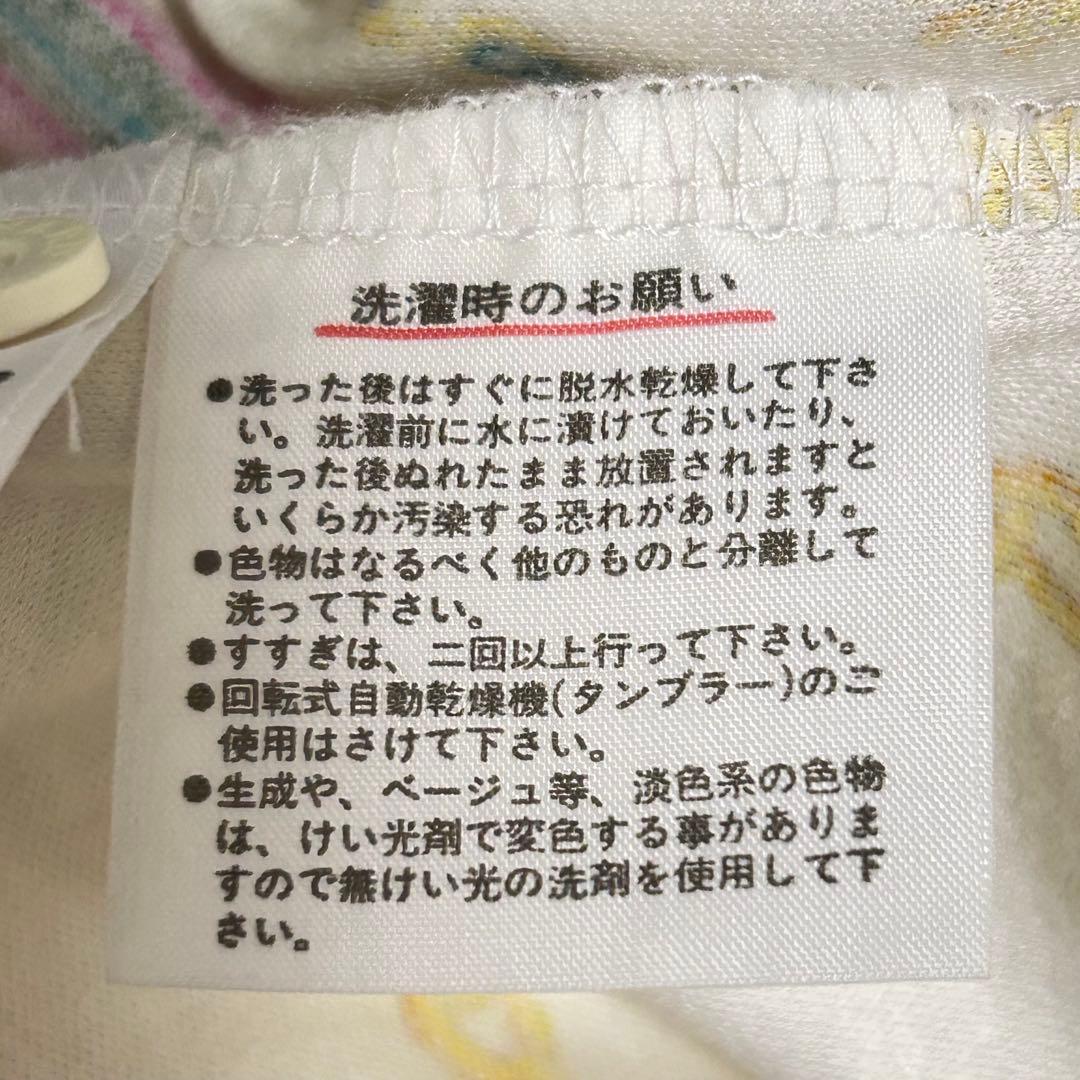 洗濯時のお願い
●洗った後はすぐに脱水乾燥して下さ
い。洗濯前に水に漬けておいたり、
洗った後ぬれたまま放置されますと
いくらか汚染する恐れがあります。
●色物はなるべく他のものと分離して
洗って下さい。
●すすぎは、二回以上行って下さい。
●回転式自動乾燥機(タンブラー)のご
使用はさけて下さい。
●生成や、ベージュ等、淡色系の色物
は、けい光剤で変色する事がありま
すので無けい光の洗剤を使用して下
さい。